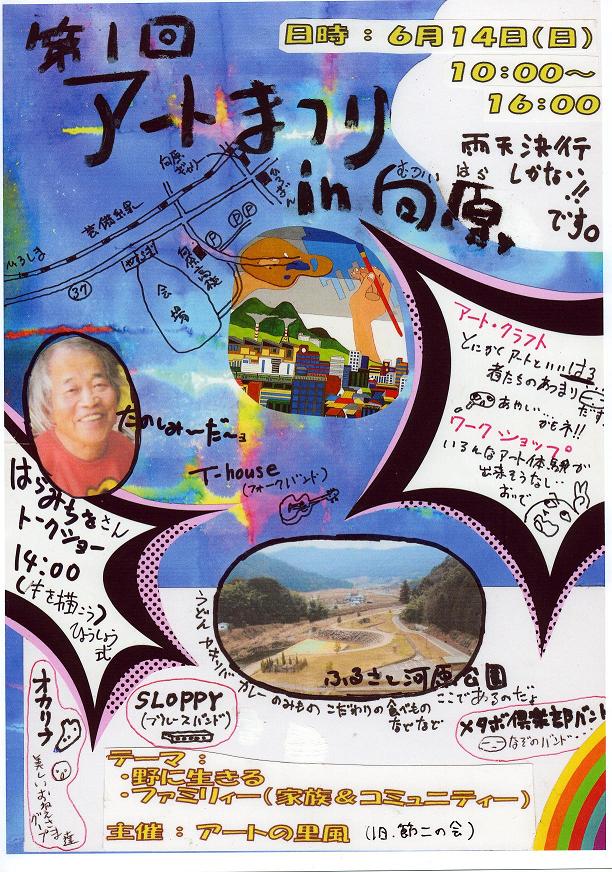 第1回
アートまつり
in 向原
むかい はら
日時：6月14日(日)
10:00～
16:00
雨天決行
しかない!!
です。
向原
芸備線
ひろしま
37
P P P
向原高校
会場
アート・クラフト
とにかくアートといいはる
者たちのあつまり
だす
あやい…
かもネ!!
ワークショップ
いろんなアート体験が
出来そうなしい
おいで
たのしみ～だ～ョ
T-house
(フォークバンド)
はらみちをさん
トークショー
14:00
(牛を描こう)
ひょうしょう
式
うどん ヤキソバ カレー のみもの こだわりの食べもの
などなど
ふるさと河原公園
ここであるのだよ
オカリナ
美しいおねえさま達
グループ
SLOPPY
(ブルースバンド)
メタボ倶楽部バンド
なぞのバンド…
テーマ：
・野に生きる
・ファミリィー(家族&コミュニティー)
主催：アートの里風 (旧.節二の会)